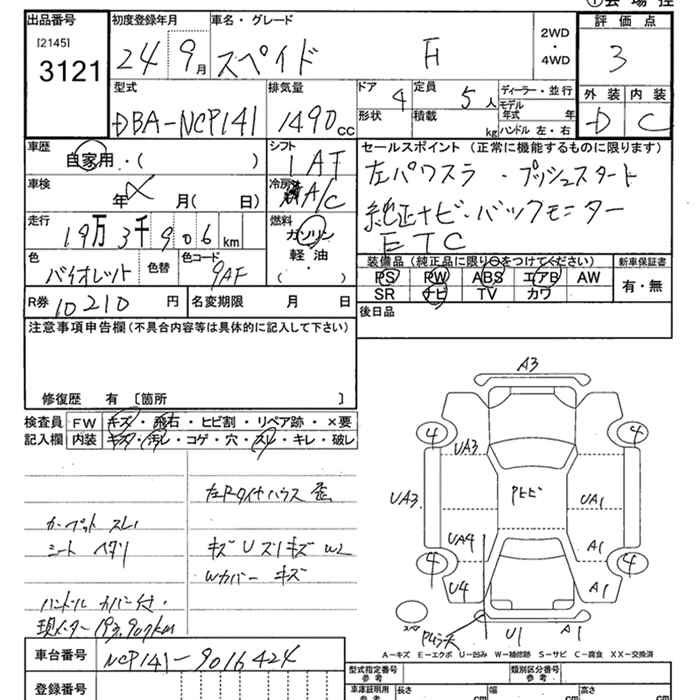 ①会場控
出品番号
[2145]
3121
初度登録年月
24 9月
車名・グレード
スペイド F
2WD
・
4WD
評価点
3
外装 内装
D C
型式
DBA-NCP141
排気量
1490cc
ドア 4
形状
定員 5人
積載 kg
ディーラー・並行
モデル年式 年
ハンドル 左・右
車歴
自家用・( )
車検
年 月( 日)
シフト
1 AT
冷房
A/C
走行
19万3千906km
燃料
ガソリン
軽油
( )
色
バイオレット
色替
色コード
9AF
R券 10210円
名変期限 月 日
セールスポイント(正常に機能するものに限ります)
左パワスラ・プッシュスタート
純正ナビ・バックモニター
ETC
装備品(純正品に限り○をつけてください)
PS PW ABS エアB AW
SR ナビ TV カワ
新車保証書
有・無
後日品
注意事項申告欄(不具合内容等は具体的に記入して下さい)
修復歴 有 〔箇所 〕
検査員
記入欄
FW キズ・飛石・ヒビ割・リペア跡・×要
内装 キズ・汚レ・コゲ・穴・スレ・キレ・破レ
左Rタイヤハウス 歪
カーペット スレ
シート ヘタリ
キズ U ズリキズ W2
Wカバー キズ
ハンドル カバー付・
現メーター193,907km
A3
4 4
UA3
UA3
Pヒビ
UA1
UA4
A1
4 4
U4
A1
スペア
U1
A1
A−キズ E−エクボ U−凹み W−補修跡 S−サビ C−腐食 XX−交換済
車台番号
NCP141-9016424
登録番号
型式指定番号
参考
類別区分番号
参考
車庫証明用
参考
長さ cm
幅 cm
高さ cm